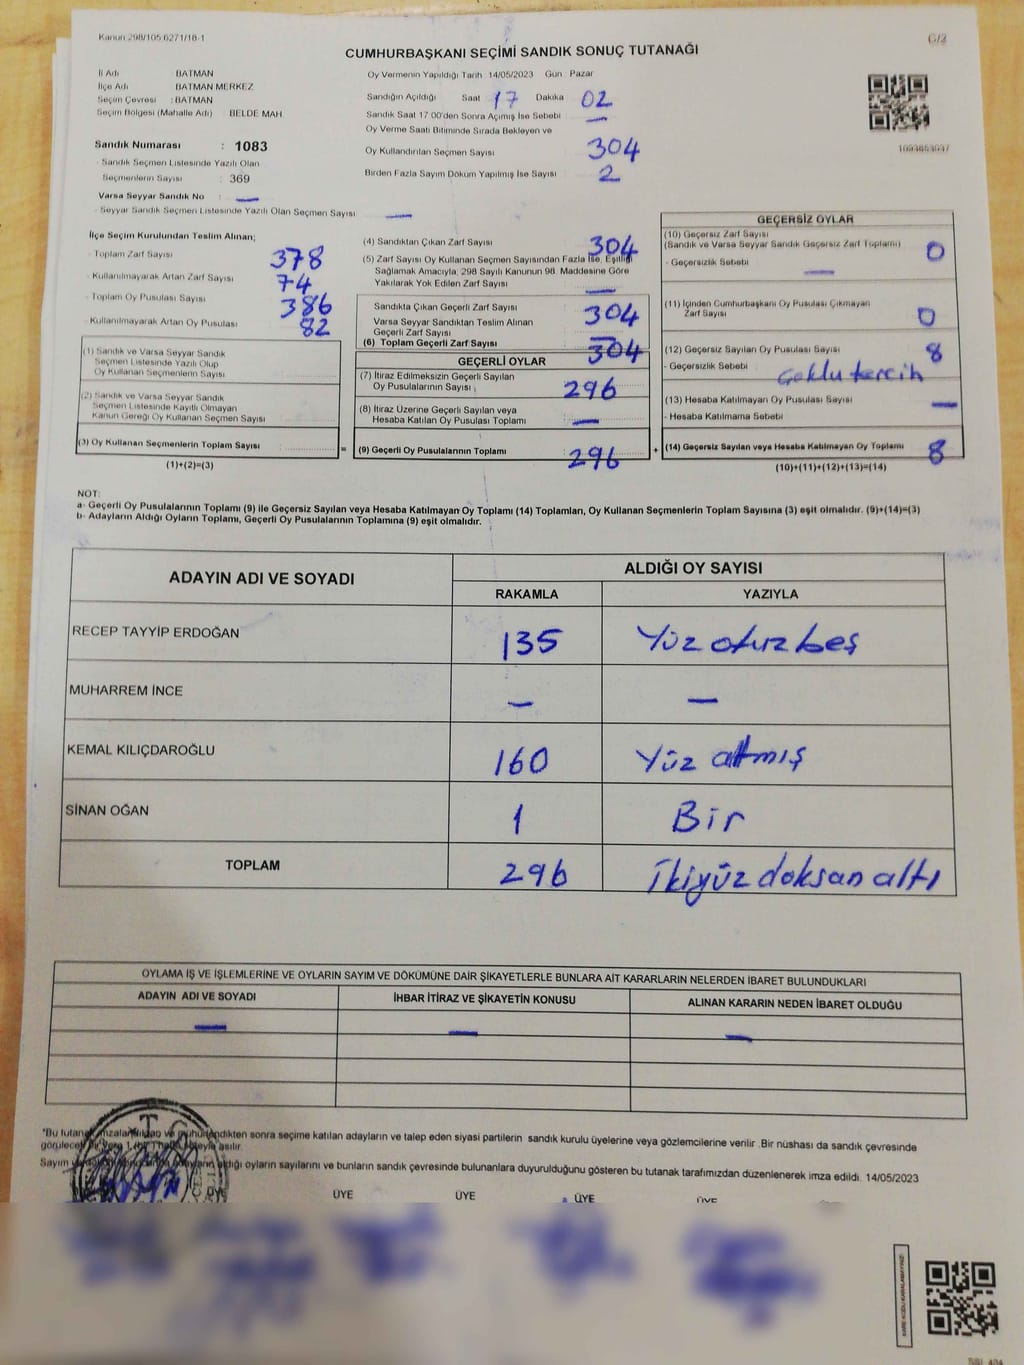 Kanun 298/105 6271/18-1
G/2
CUMHURBAŞKANI SEÇİMİ SANDIK SONUÇ TUTANAĞI
İl Adı BATMAN
İlçe Adı BATMAN MERKEZ
Seçim Çevresi : BATMAN
Seçim Bölgesi (Mahalle Adı) BELDE MAH
Sandık Numarası : 1083
- Sandık Seçmen Listesinde Yazılı Olan
Seçmenlerin Sayısı : 369
Varsa Seyyar Sandık No : —
- Seyyar Sandık Seçmen Listesinde Yazılı Olan Seçmen Sayısı —
Oy Vermenin Yapıldığı Tarih 14/05/2023 Gün Pazar
Sandığın Açıldığı Saat 17 Dakika 02
Sandık Saat 17 00'den Sonra Açımış İse Sebebi —
Oy Verme Saati Bitiminde Sırada Bekleyen ve
Oy Kullandırılan Seçmen Sayısı 304
Birden Fazla Sayım Döküm Yapılmış İse Sayısı 2
1093653037
İlçe Seçim Kurulundan Teslim Alınan;
- Toplam Zarf Sayısı : 378
- Kullanılmayarak Artan Zarf Sayısı 74
- Toplam Oy Pusulası Sayısı 386
- Kullanılmayarak Artan Oy Pusulası 82
(1) Sandık ve Varsa Seyyar Sandık
Seçmen Listesinde Yazılı Olup
Oy Kullanan Seçmenlerin Sayısı
(2) Sandık ve Varsa Seyyar Sandık
Seçmen Listesinde Kayıtlı Olmayan
Kanun Gereği Oy Kullanan Seçmen Sayısı
(3) Oy Kullanan Seçmenlerin Toplam Sayısı =
(1)+(2)=(3)
(4) Sandıktan Çıkan Zarf Sayısı 304
(5) Zarf Sayısı Oy Kullanan Seçmen Sayısından Fazla İse, Eşitliği
Sağlamak Amacıyla, 298 Sayılı Kanunun 98. Maddesine Göre
Yakılarak Yok Edilen Zarf Sayısı —
Sandıkta Çıkan Geçerli Zarf Sayısı 304
Varsa Seyyar Sandıktan Teslim Alınan
Geçerli Zarf Sayısı —
(6) Toplam Geçerli Zarf Sayısı 304
GEÇERLİ OYLAR
(7) İtiraz Edilmeksizin Geçerli Sayılan
Oy Pusulalarının Sayısı 296
(8) İtiraz Üzerine Geçerli Sayılan veya
Hesaba Katılan Oy Pusulası Toplamı —
(9) Geçerli Oy Pusulalarının Toplamı 296 +
GEÇERSİZ OYLAR
(10) Geçersiz Zarf Sayısı
(Sandık ve Varsa Seyyar Sandık Geçersiz Zarf Toplamı) 0
- Geçersizlik Sebebi —
(11) İçinden Cumhurbaşkanı Oy Pusulası Çıkmayan
Zarf Sayısı 0
(12) Geçersiz Sayılan Oy Pusulası Sayısı 8
- Geçersizlik Sebebi Çoklu tercih
(13) Hesaba Katılmayan Oy Pusulası Sayısı —
- Hesaba Katılmama Sebebi
(14) Geçersiz Sayılan veya Hesaba Katılmayan Oy Toplamı 8
(10)+(11)+(12)+(13)=(14)
NOT:
a- Geçerli Oy Pusulalarının Toplamı (9) ile Geçersiz Sayılan veya Hesaba Katılmayan Oy Toplamı (14) Toplamları, Oy Kullanan Seçmenlerin Toplam Sayısına (3) eşit olmalıdır. (9)+(14)=(3)
b- Adayların Aldığı Oyların Toplamı, Geçerli Oy Pusulalarının Toplamına (9) eşit olmalıdır.
ADAYIN ADI VE SOYADI
ALDIĞI OY SAYISI
RAKAMLA YAZIYLA
RECEP TAYYİP ERDOĞAN 135 Yüz otuz beş
MUHARREM İNCE — —
KEMAL KILIÇDAROĞLU 160 Yüz altmış
SİNAN OĞAN 1 Bir
TOPLAM 296 İkiyüz doksan altı
OYLAMA İŞ VE İŞLEMLERİNE VE OYLARIN SAYIM VE DÖKÜMÜNE DAİR ŞİKAYETLERLE BUNLARA AİT KARARLARIN NELERDEN İBARET BULUNDUKLARI
ADAYIN ADI VE SOYADI İHBAR İTİRAZ VE ŞİKAYETİN KONUSU ALINAN KARARIN NEDEN İBARET OLDUĞU
— — —
*Bu tutanak sonra seçime katılan adayların ve talep eden siyasi partilerin sandık kurulu üyelerine veya gözlemcilerine verilir. Bir nüshası da sandık çevresinde
görülecek bir yere asılır.
Sayım aldığı oyların sayılarını ve bunların sandık çevresinde bulunanlara duyurulduğunu gösteren bu tutanak tarafımızdan düzenlenerek imza edildi. 14/05/2023
ÜYE ÜYE ÜYE ÜYE